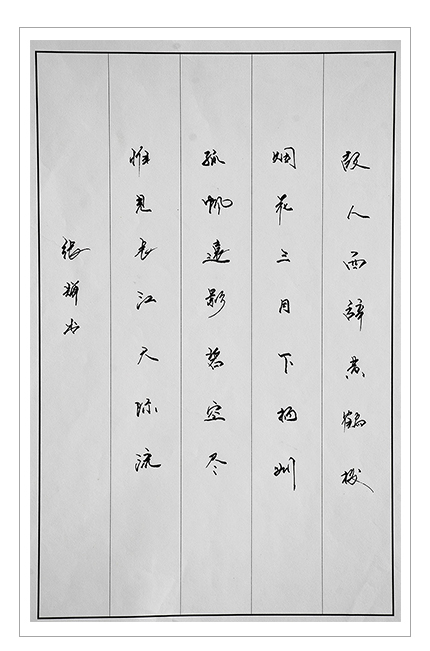 故人西辞黄鹤楼
烟花三月下扬州
孤帆遠影碧空尽
惟見长江天际流
张辉书